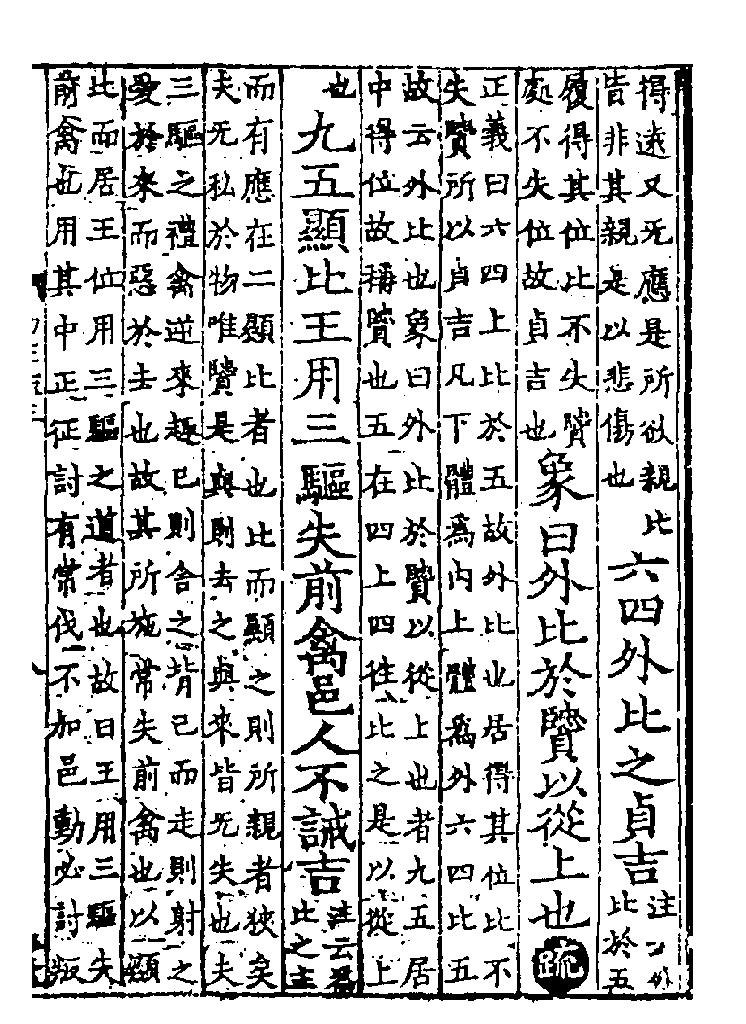 得遠又无應是所欲親比
皆非其親是以悲傷也
六四外比之貞吉
注 外
比於五
履得其位比不失賢
處不失位故貞吉也
象曰外比於賢以從上也
疏
正義曰六四上比於五故外比也居得其位比不
失賢所以貞吉凡下體爲内上體爲外六四比五
故云外比也象曰外比於賢以從上也者九五居
中得位故稱賢也五在四上四往比之是以從上
也
九五顯比王用三驅失前禽邑人不誡吉
注云爲
比之主
而有應在二顯比者也比而顯之則所親者狹矣
夫无私於物唯賢是與則去之與來皆无失也夫
三驅之禮禽逆來趣已則舍之背已而走則射之
愛於來而惡於去也故其所施常失前禽也以顯
比而居王位用三驅之道者也故曰王用三驅失
前禽也用其中正征討有常伐不加邑動必討叛